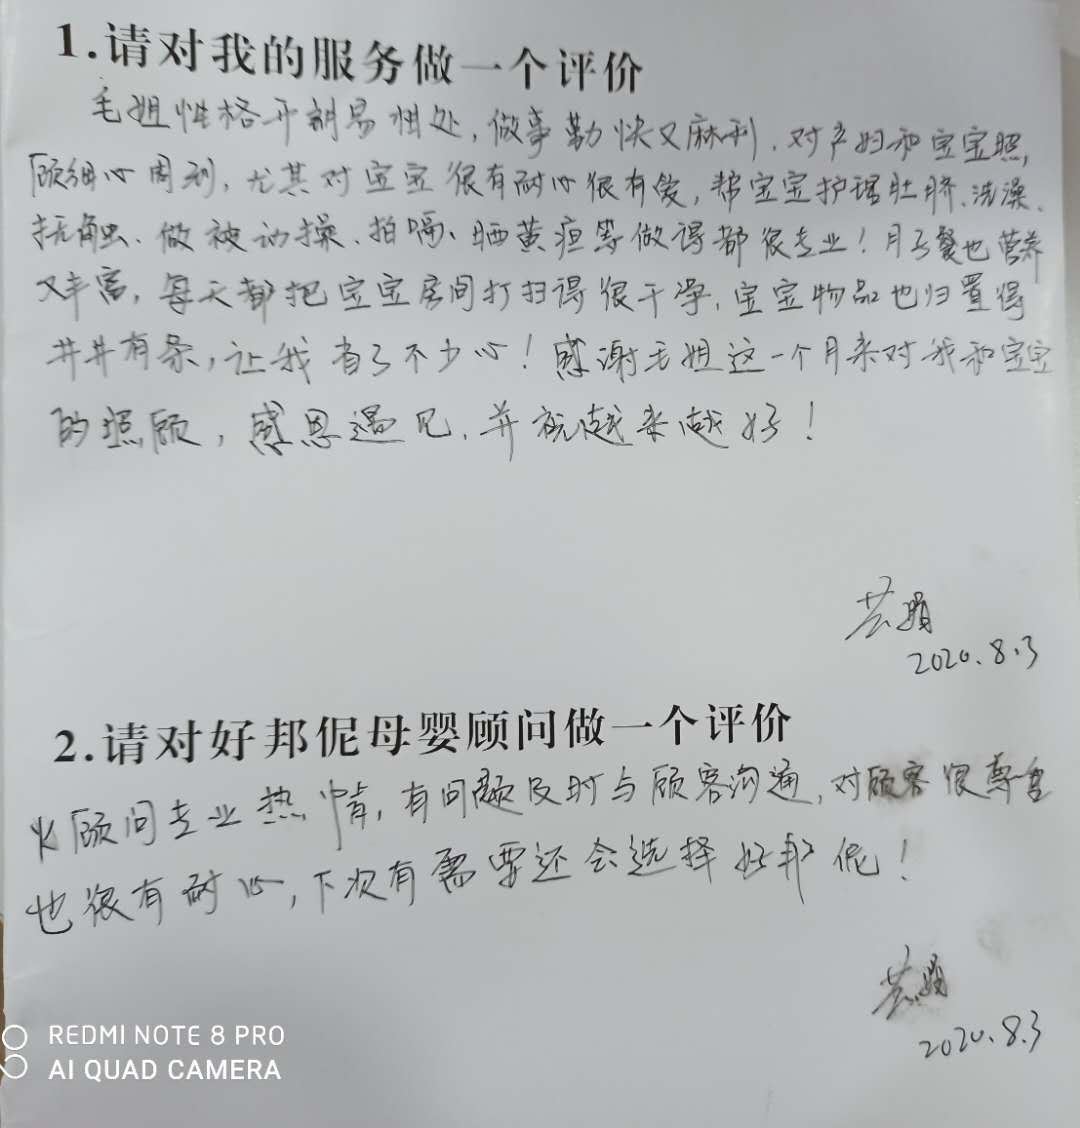 1.请对我的服务做一个评价
毛姐性格开朗易相处,做事勤快又麻利.对产妇和宝宝照
顾细心周到,尤其对宝宝很有耐心很有爱,帮宝宝护理肚脐、洗澡、
抚触、做被动操、拍嗝、晒黄疸等做得都很专业!月子餐也营养
又丰富,每天都把宝宝房间打扫得很干净,宝宝物品也归置得
井井有条,让我省了不少心!感谢毛姐这一个月来对我和宝宝
的照顾,感恩遇见,并祝越来越好!
2020.8.3
2.请对好邦伲母婴顾问做一个评价
顾问专业热情,有问题及时与顾客沟通,对顾客很尊重
也很有耐心,下次有需要还会选择好邦伲!
2020.8.3
REDMI NOTE 8 PRO
AI QUAD CAMERA